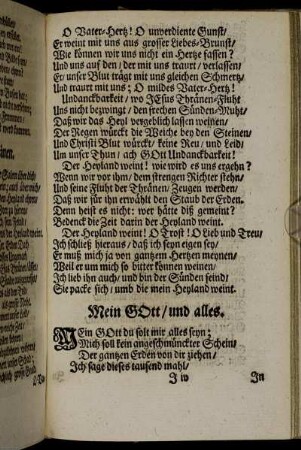 O Vater-Hertz! O unverdiente Gunst/
Er weint mit uns aus grosser Liebes-Brunst/
Wie können wir uns nicht ein Hertze fassen?
Und uns auf den/ der mit uns traurt/ verlassen/
Er unser Blut trägt mit uns gleichen Schmertz/
Und traurt mit uns; O mildes Vater-Hertz!
Undanckbarkeit/ wo JEsus Thränen-Fluht
Uns nicht bezwingt/ den frechen Sünden-Muht/
Daß wir das Heyl vergeblich lassen weinen/
Der Regen würckt die Weiche bey den Steinen/
Und Christi Blut würckt/ keine Reu/ und Leid/
Um unser Thun/ ach GOtt Undanckbarkeit!
Der Heyland weint! wie wird es uns ergehn?
Wenn wir vor ihm/ dem strengen Richter stehn/
Und seine Fluht der Thränen/ Zeugen werden/
Daß wir für ihn erwählt den Staub der Erden.
Denn heist es nicht: wer hätte diß gemeint?
Bedenck die Zeit darin der Heyland weint.
Der Heyland weint! O Trost! O Lieb und Treu/
Ich schließ hieraus/ daß ich seyn eigen sey/
Er muß mich ja von gantzem Hertzen meynen/
Weil er um mich so bitter können weinen/
Ich lieb ihn auch/ und bin der Sünden feind/
Sie packe sich/ umb die mein Heyland weint.
Mein GOtt/ und alles.
MEin GOtt du solt mir alles seyn;
Mich soll kein angeschmünckter Schein/
Der gantzen Erden von dir ziehen/
Ich sage dieses tausend mahl/
J iv
In